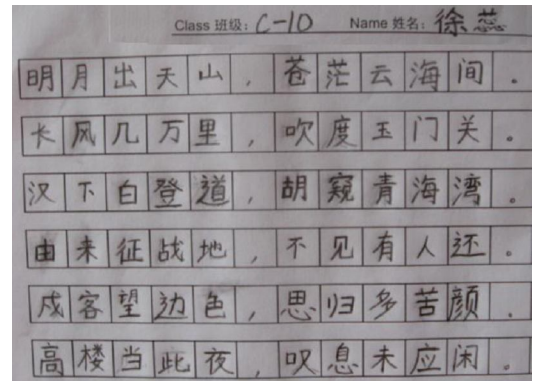 Class 班级: C-10 Name 姓名: 徐蕊
明月出天山,苍茫云海间。
长风几万里,吹度玉门关。
汉下白登道,胡窥青海湾。
由来征战地,不见有人还。
戍客望边色,思归多苦颜.
高楼当此夜,叹息未应闲。